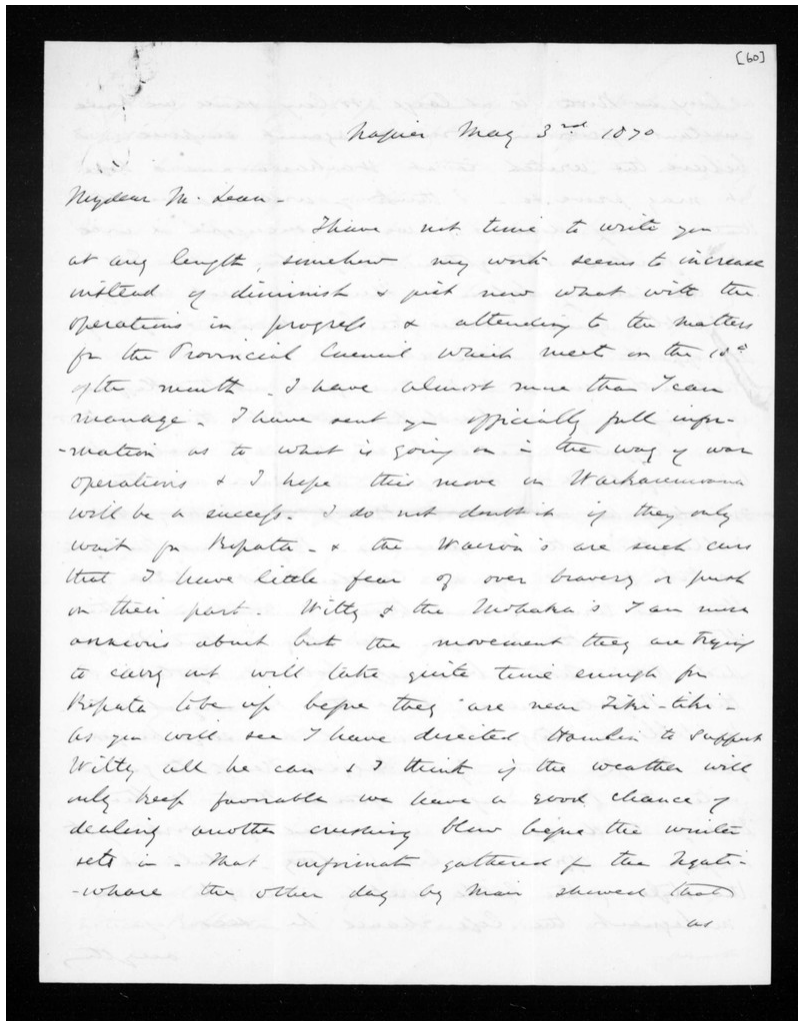 [60]
Napier May 3rd 1870
My dear McLean -
I have not time to write you
at any length, somehow my work seems to increase
instead of diminish & just now what with the
operations in progress & attending to the matters
for the Provincial Council which meet on the 10th
of the month - I have almost more than I can
manage - I have sent you officially full infor-
-mation as to what is going on in the way of war
operations & I hope this move on Waikaremoana
will be a success. I do not doubt it if they only
wait for Ropata - & the Wairoa's are such curs
that I have little fear of over bravery or push
on their part. Witty & the Mohaka's I am more
anxious about but the movement they are trying
to carry out will take quite time enough for
Ropata to be up before they are near Tiki-tiki -
As you will see I have directed Hamlin to support
Witty all he can & I think if the weather will
only keep favorable we have a good chance of
dealing another crushing blow before the winter
sets in - That informatn gathered fr the Ngati-
-whare the other day by Mair shewed that
as